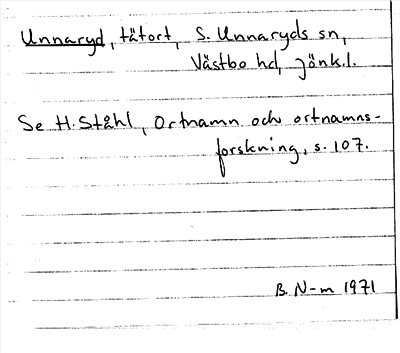 Unnaryd, tätort, S. Unnaryds sn,
Västbo hd, Jönk.l.
Se H. Ståhl, Ortnamn och ortnamns-
forskning, s. 107.
B. N-m 1971